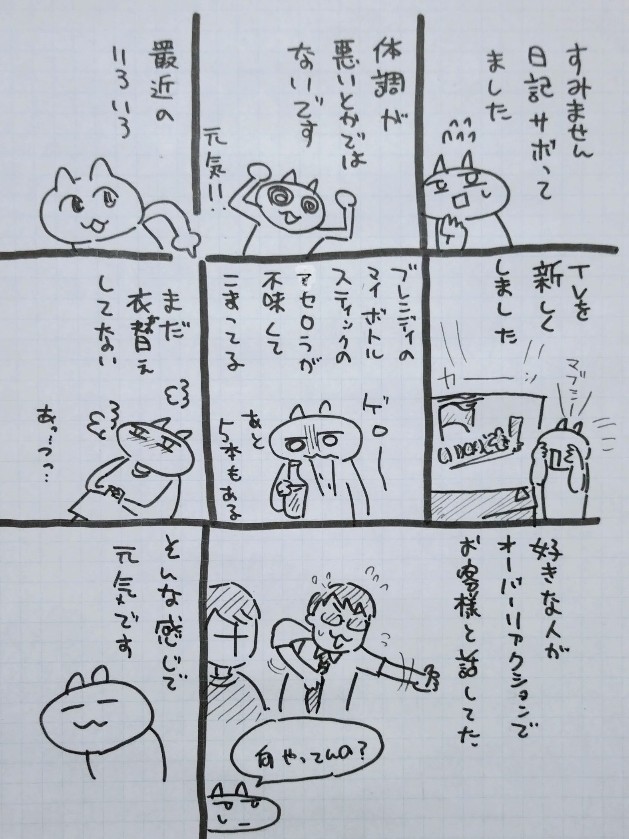 すみません
日記サボって
ました
体調が
悪いとかでは
ないです
元気!!
最近の
いろいろ
TVを
新しく
しました
マブシ
カーーッ
ブレンディの
マイボトル
スティックの
アセロラが
不味くて
こまってる
ゲロー
あと
5本もある
まだ
衣替え
してない
あっ…つっ…
好きな人が
オーバーリアクションで
お客様と話してた
何やってんの?
そんな感じで
元気です